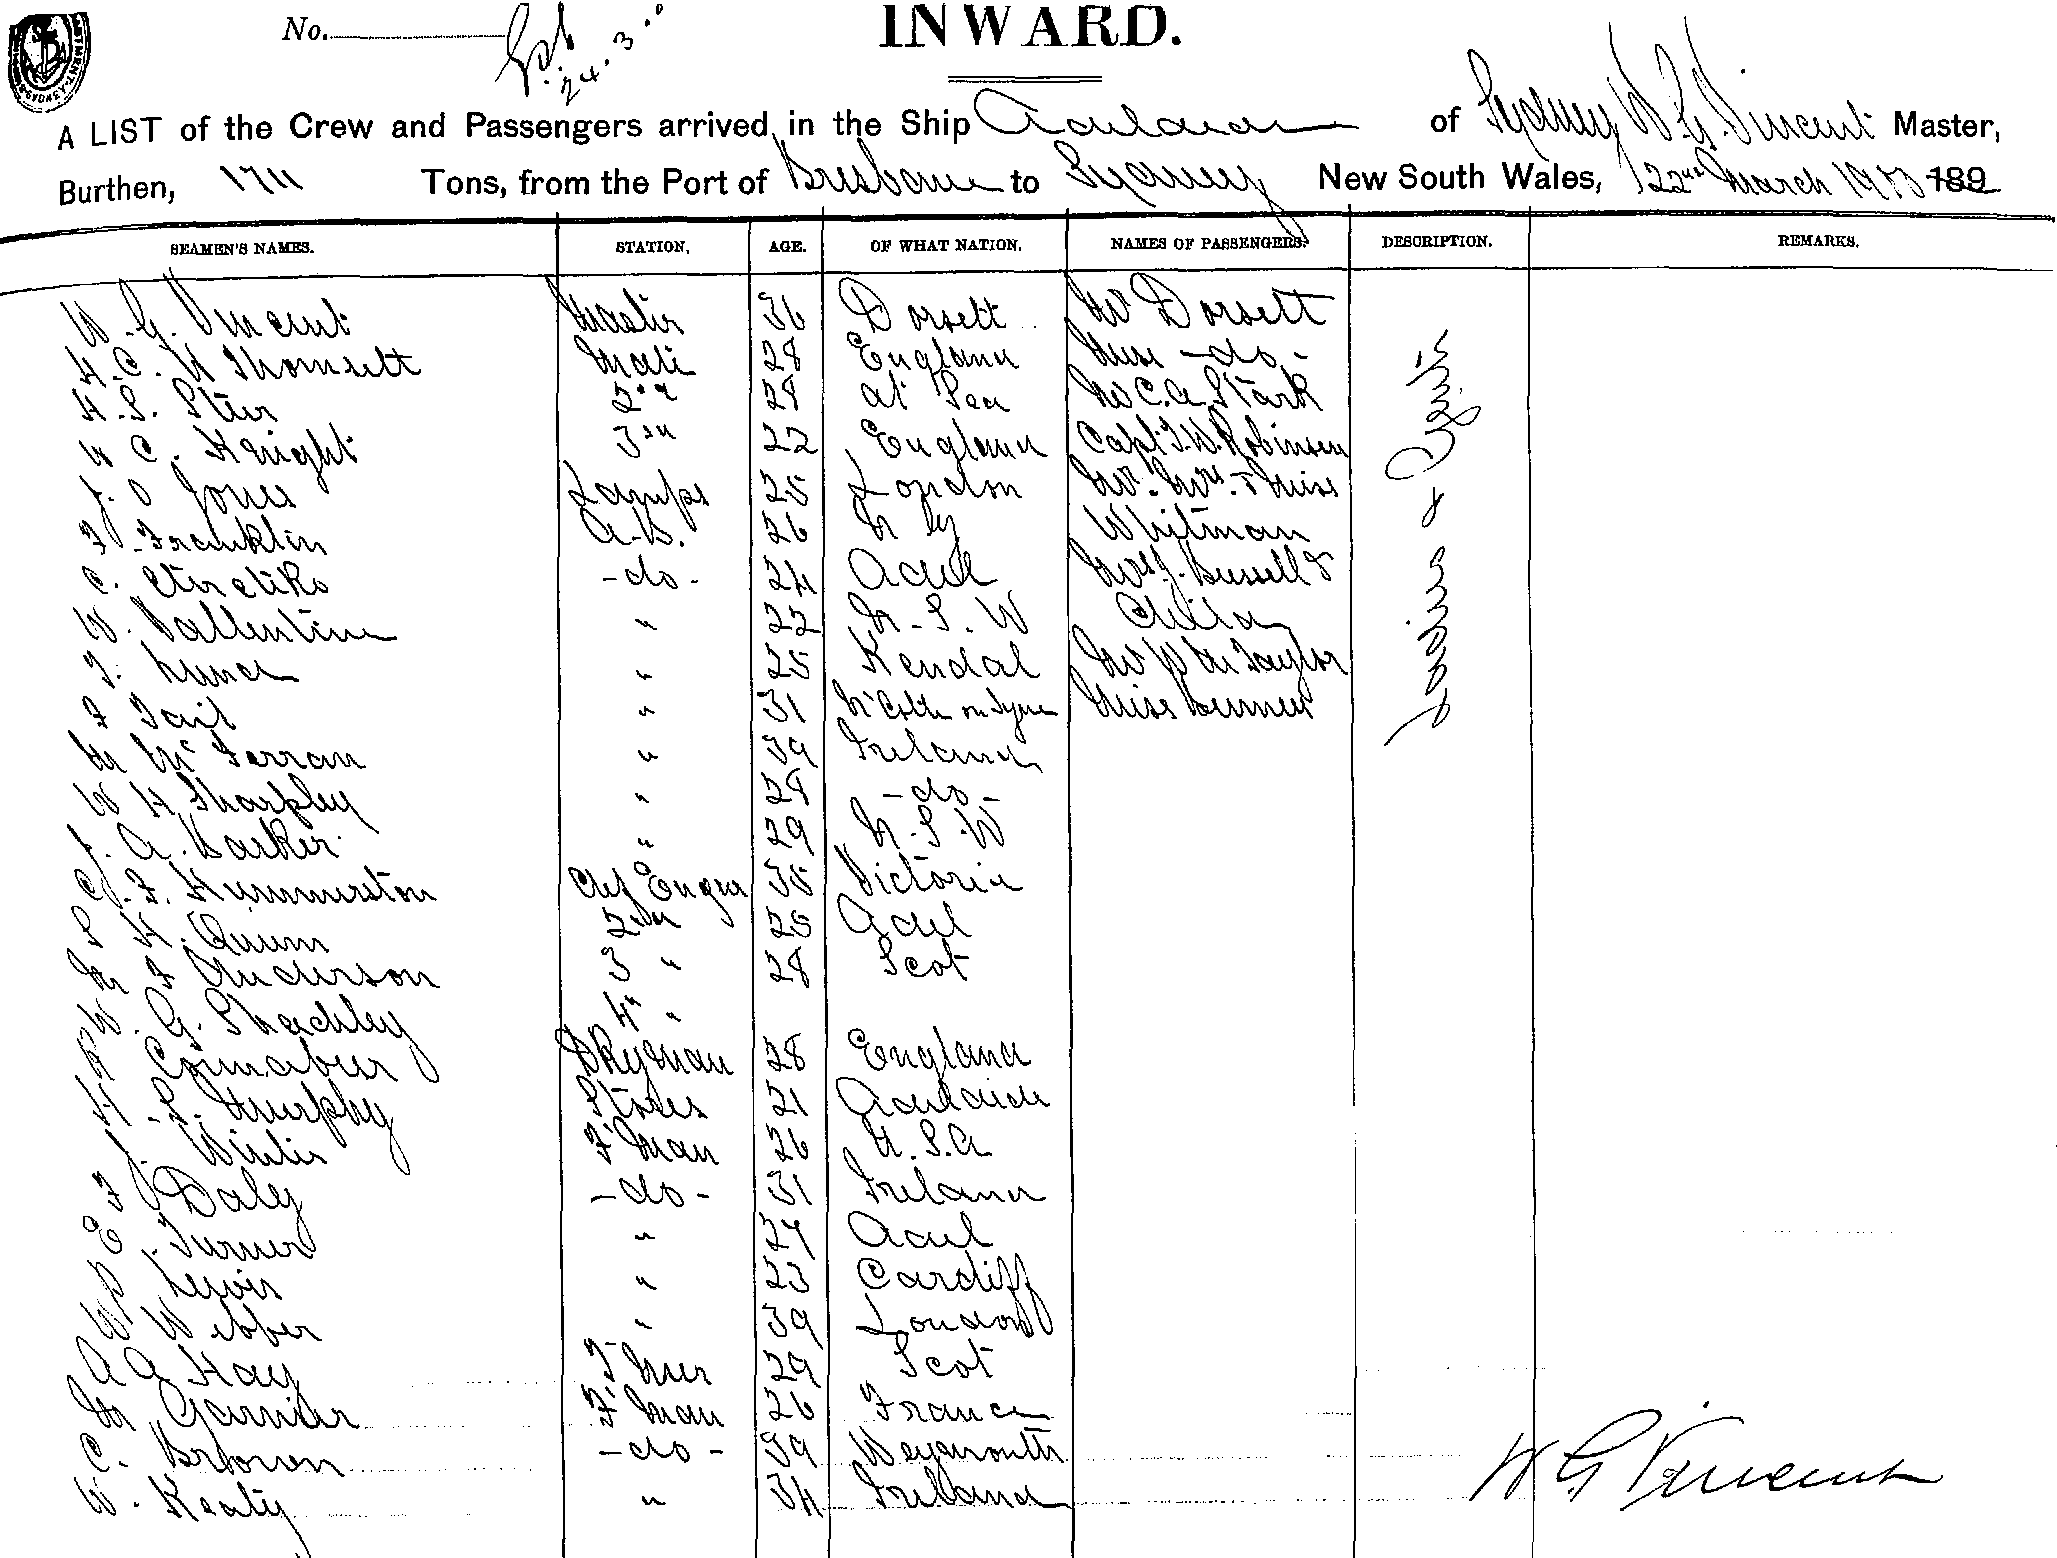 No.
24.3.00
INWARD.
A LIST of the Crew and Passengers arrived in the Ship Adelaide of Sydney W. G. Vincent Master,
Burthen, 1711 Tons, from the Port of Brisbane to Sydney New South Wales, 22nd March 1900 189
SEAMEN'S NAMES. STATION, AGE. OF WHAT NATION. NAMES OF PASSENGERS. DESCRIPTION. REMARKS.
W. G. Vincent Master 36 Dorsett Mr Dorsett
H. C. H Thomsett Mate 28 England Miss -do-
H. S. 2nd 28 at Sea Mr C. A. Stark
W C. Knight 3rd 22 England Capt. J. W. Robinson
J. O Jones Lamps 25 London Mr. Mrs. & Miss
F. Franklin A.B. 26 Whitman
C. -do- 24 Adel Mrs J. Russell &
W. Ballentine " 22 N.S.W Child
T. " 25 Kendal Mr W M Taylor
F Tait " 31 N'Castle on Tyne Miss
M McFerran " 39 Ireland
W H Sharpley " 28 -do-
J. A. Barker " 29 N.S.W
C. F. Hummerston Chf Engr 35 Victoria
S H. Quinn 2nd " 25 Adel
M F Anderson 3 " 28 Scot
W. G. Shackley 4th "
R Cornabeer Dkyman 28 England
H. S. Murphy Stores 21 Adelaide
J. F'man 26 U.S.A
F J Daly -do- 31 Ireland
E. Turner " 27 Adel
P Lewis " 23 Cardiff
W Webber " 39 London
A G Hay T'mer 29 Scot
M Garnier F'man 26 France
C. Brown -do- 39 Weymouth
W. Keaty " 34 Ireland
Ladies & Gents
W G Vincent